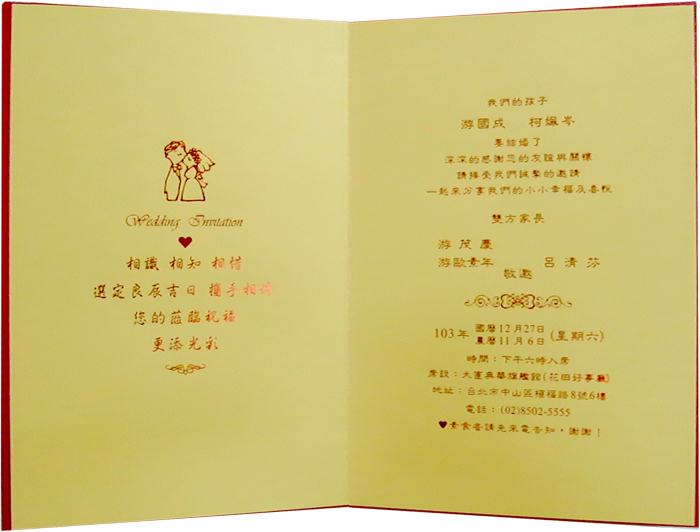 Wedding Invitation
相識 相知 相惜
選定良辰吉日 攜手相待
您的蒞臨祝福
更添光彩
我們的孩子
游國成 柯姵岑
要結婚了
深深的感謝您的友誼與關懷
請接受我們誠摯的邀請
一起來分享我們的小小幸福及喜悅
雙方家長
游茂慶
游歐素年 呂清芬
敬邀
103年 國曆12月27日 (星期六)
農曆11月6日
時間：下午六時入席
席設：大直典華旗艦館(花田好事廳)
地址：台北市中山區植福路8號6樓
電話：(02)8502-5555
♥素食者請先來電告知，謝謝！